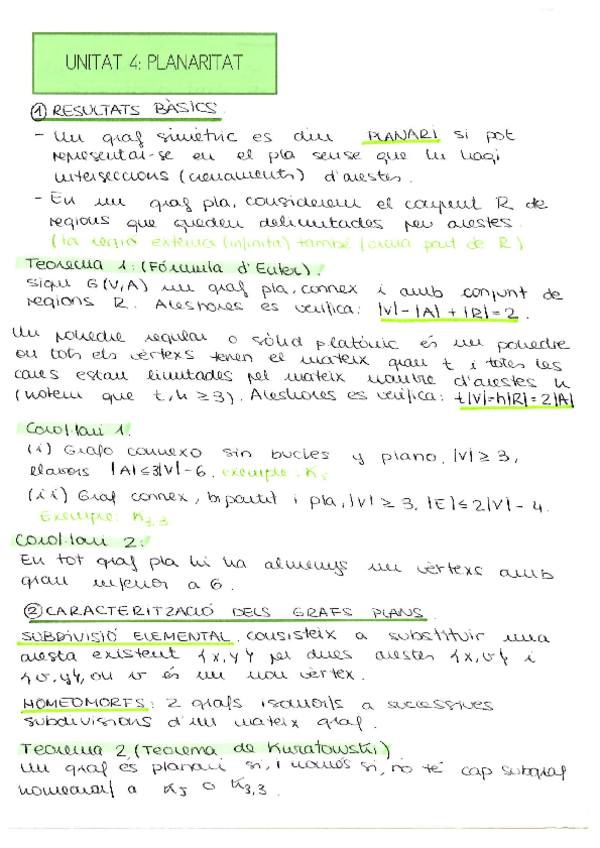 UNITAT 4: PLANARITAT
① RESULTATS BÀSICS
- Un graf simètric es diu PLANARI si pot
representar-se en el pla sense que hi hagi
interseccions (creuaments) d'arestes.
- En un graf pla, considerem el conjunt R de
regions que queden delimitades per arestes.
(la regió externa (infinita) també forma part de R)
Teorema 1: (Fórmula d'Euler).
sigui G(V,A) un graf pla, connex i amb conjunt de
regions R. Aleshores es verifica: |V|-|A|+|R|=2.
Un poliedre regular o sòlid platònic és un poliedre
on tots els vèrtexs tenen el mateix grau t i totes les
cares estan limitades pel mateix nombre d'arestes h
(notem que t,h ≥ 3). Aleshores es verifica: t|V|=h|R|=2|A|
Corol·lari 1.
(i) Grafo connexo sin bucles y plano, |V| ≥ 3,
|A| ≤ 3|V|-6. exemple: K5
(ii) Graf connex, bipartit i pla, |V| ≥ 3, |E| ≤ 2|V| - 4.
Exemple: K3,3
Corol·lari 2:
En tot graf pla hi ha almenys un vèrtexs amb
grau inferior a 6.
② CARACTERITZACIÓ DELS GRAFS PLANS
SUBDIVISIÓ ELEMENTAL consisteix a substituir una
aresta existent {x,y} per dues arestes {x,v} i
{v,y}, on v és un nou vèrtex.
HOMEOMORFS: 2 grafs isomorfs a successives
subdivisions d'un mateix graf.
Teorema 2 (Teorema de Kuratowski)
Un graf és planari si, i només si, no té cap subgraf
homeomorf a K5 o K3,3.